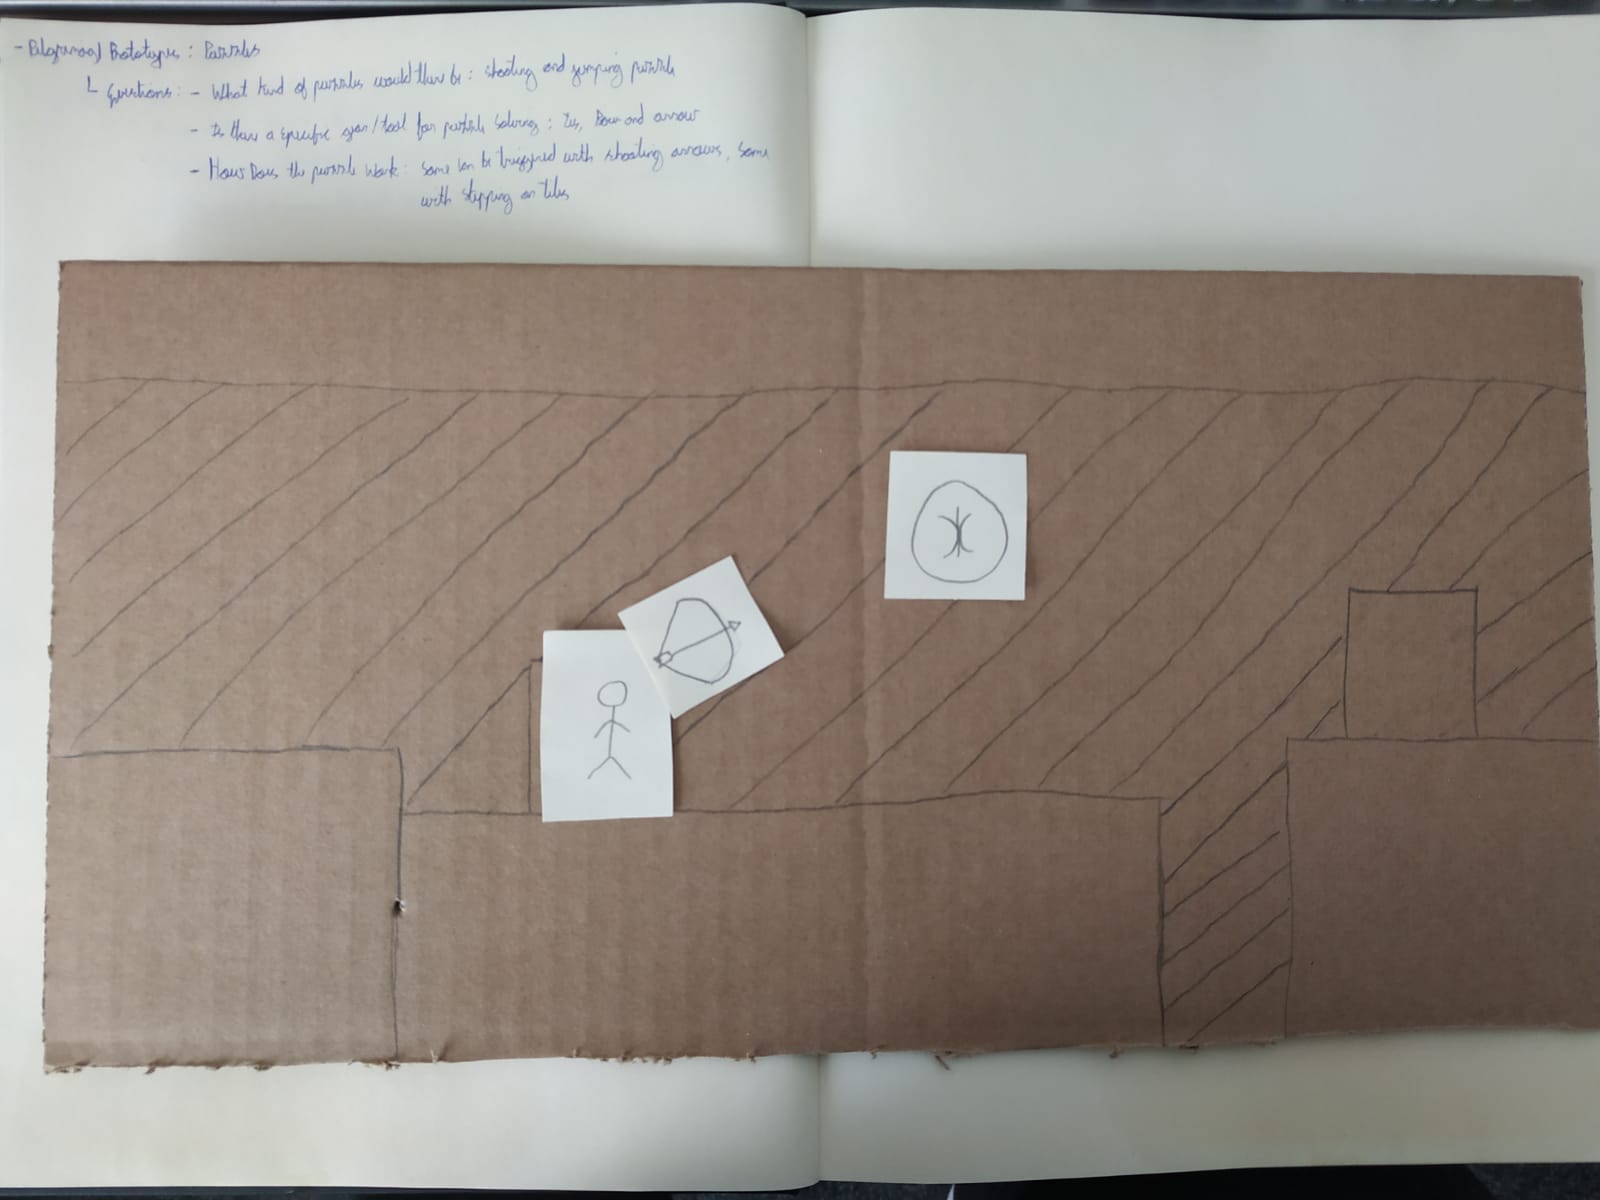 - Playground Prototype: Puzzles
Questions: - What kind of puzzles would there be: shooting and jumping puzzle
- Is there a specific gear/tool for puzzle solving: Yes, Bow and arrow
- How Does the puzzle work: some can be triggered with shooting arrows, some
with stepping on tiles